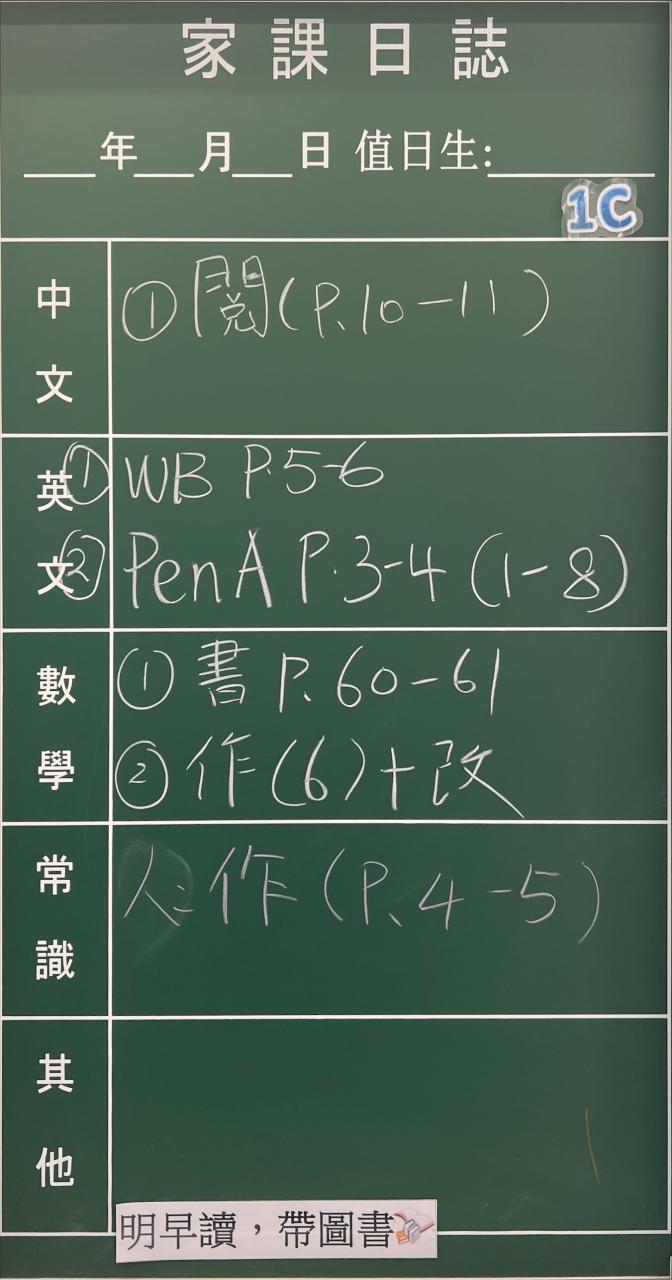 家課日誌
___年___月___日 值日生:________
1C
中文
① 閱(P.10-11)
英文
① WB P.5-6
② Pen A P.3-4 (1-8)
數學
① 書 P.60-61
② 作(6)+改
常識
人:作(P.4-5)
其他
明早讀，帶圖書